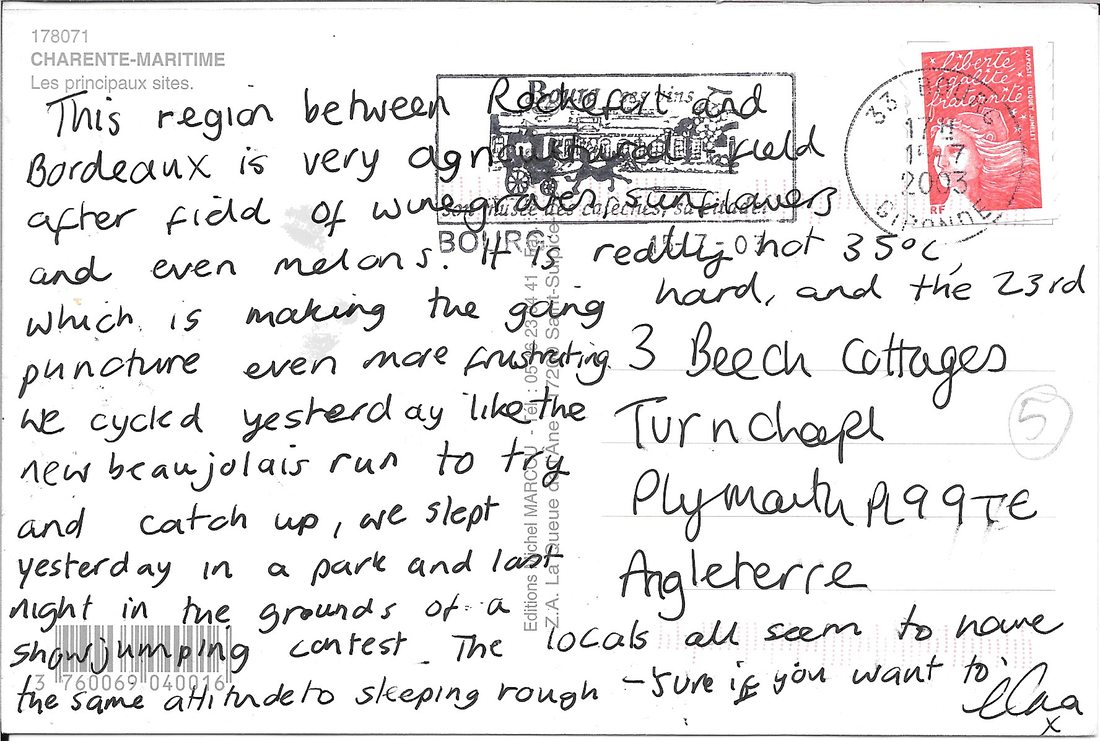 178071
CHARENTE-MARITIME
Les principaux sites.
This region between Rochefort and
Bordeaux is very agricultural field
after field of wine grapes, sunflowers
and even melons. It is really hot 35°c,
which is making the going hard, and the 23rd
puncture even more frustrating.
We cycled yesterday like the
new beaujolais run to try
and catch up, we slept
yesterday in a park and last
night in the grounds of a
showjumping contest. The locals all seem to have
the same attitude to sleeping rough - sure if you want to'
x
3 Beech Cottages
Turnchapl
Plymouth PL9 9TE
Angleterre
5
Bourg ses vins
son musée des calèches, sa citadelle
BOURG
17-7-03
33 BOURG
17H
2003
GIRONDE
liberté
égalité
fraternité
LA POSTE
RF
Editions Michel MARCOU - Tél. : 05
Z.A. La Queue de l'Ane - 17200 Saint-Sulpice
3 760069 040016